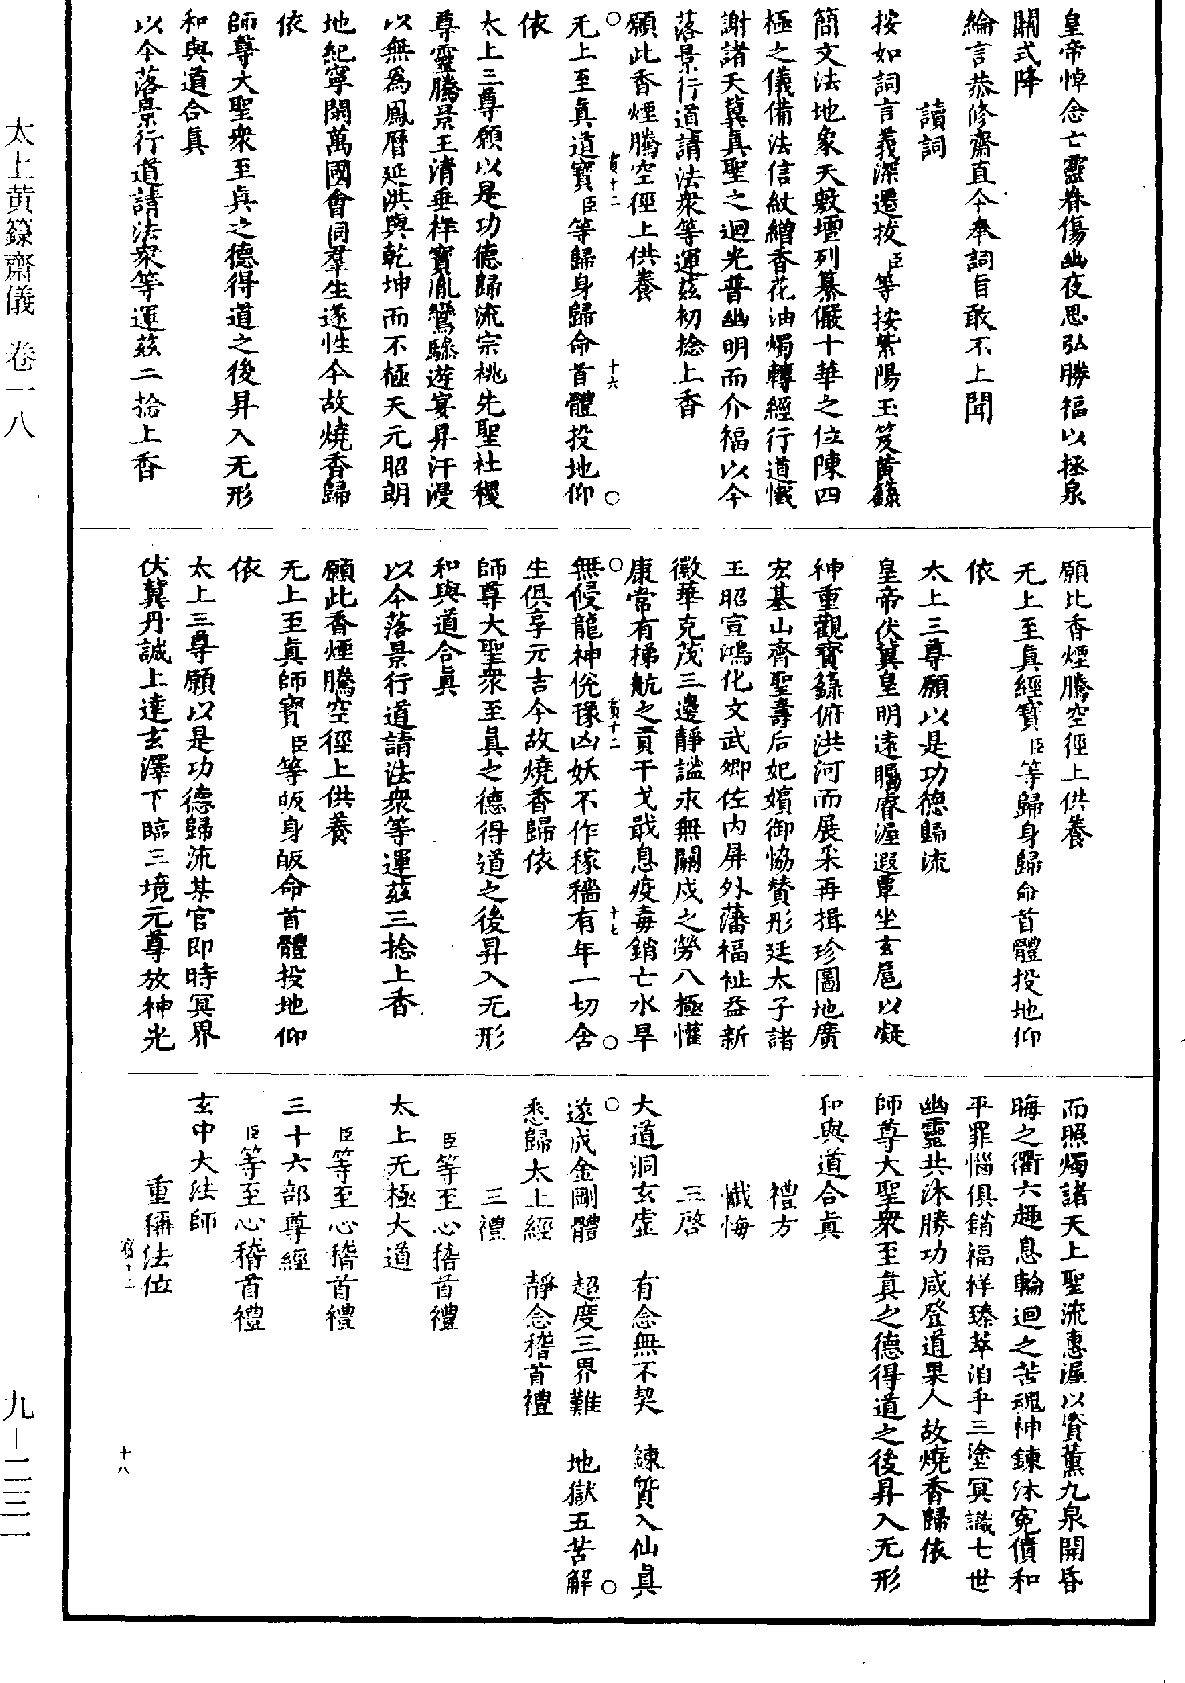 太上黃籙齋儀　卷一八
九—二三一
皇帝悼念亡靈眷傷幽夜思弘勝福以拯泉
關式降
綸言恭修齋直今奉詞旨敢不上聞
讀詞
按如詞言義深遷拔臣等按紫陽玉笈黃籙
簡文法地象天敷壇列纂儼十華之位陳四
極之儀備法信紋繒香花油燭轉經行道懺
謝諸天冀真聖之迴光普幽明而介福以今
落景行道請法衆等運茲初捻上香
願此香煙騰空徑上供養
无上至真道寶臣等歸身歸命首體投地仰
依
太上三尊願以是功德歸流宗祧先聖社稷
尊靈騰景王清垂祥寶胤鸞驂遊宴昇汗漫
以無為鳳曆延洪與乾坤而不極天元昭朗
地紀寧開萬國會同羣生遂性今故燒香歸
依
師尊大聖衆至真之德得道之後昇入无形
和與道合真
以今落景行道請法衆等運茲二捻上香
十六
願比香煙騰空徑上供養
无上至真經寶臣等歸身歸命首體投地仰
依
太上三尊願以是功德歸流
皇帝伏冀皇明遠矚睿渥遐覃坐玄扈以凝
神重觀寶籙俯洪河而展采再揖珍圖地廣
宏基山齊聖壽后妃嬪御恊贊彤廷太子諸
王昭宣鴻化文武卿佐內屏外藩福祉益新
徽華克茂三邊靜謐永無關戍之勞八極懽
康常有梯航之貢干戈戢息疫毒銷亡水旱
無侵龍神悅豫凶妖不作稼穡有年一切含
生俱享元吉今故燒香歸依
師尊大聖衆至真之德得道之後昇入无形
和與道合真
以今落景行道請法衆等運茲三捻上香
願此香煙騰空徑上供養
无上至真師寶臣等皈身皈命首體投地仰
依
太上三尊願以是功德歸流某官即時冥界
伏冀丹誠上達玄澤下臨三境元尊放神光
十七
而照燭諸天上聖流惠渥以賁薰九泉開昏
晦之衢六趣息輪迴之苦魂神鍊沐寃債和
平罪惱俱銷福祥臻萃洎乎三塗冥識七世
幽靈共沐勝功咸登道果人故燒香歸依
師尊大聖衆至真之德得道之後昇入无形
和與道合真
禮方
懺悔
三啓
大道洞玄虛　有念無不契　鍊質入仙真
遂成金剛體　超度三界難　地獄五苦解
悉歸太上經　靜念稽首禮
三禮
臣等至心稽首禮
太上无極大道
臣等至心稽首禮
三十六部尊經
臣等至心稽首禮
玄中大法師
重稱法位
十八